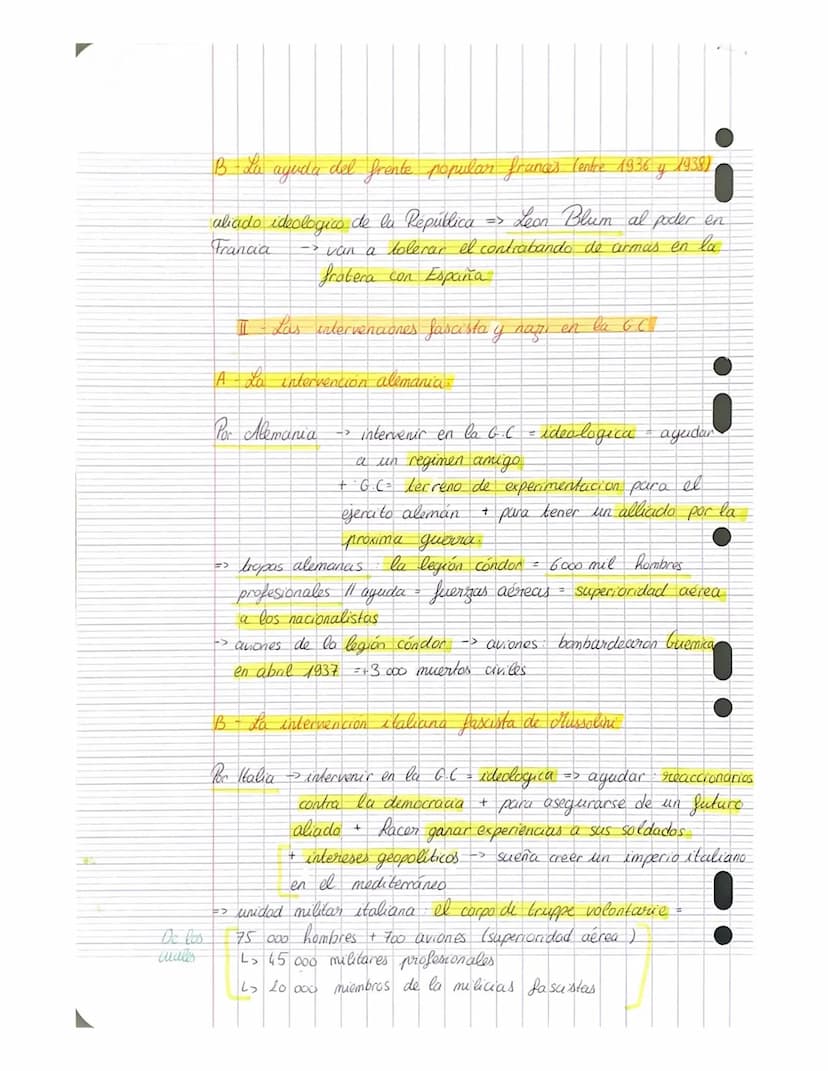 B - La ayuda del frente popular frances (entre 1936 y 1938)
aliado ideologico de la República => Leon Blum al poder en
Francia -> van a tolerar el contrabando de armas en la
frotera con España
II - Las intervenciones fascista y nazi en la G C
A - La intervención alemania:
Por Alemania -> intervenir en la G.C = ideologica = ayudar
a un regimen amigo
+ G.C = terreno de experimentacion para el
ejercito alemán + para tener un alliado por la
proxima guerra.
=> tropas alemanas : la legión cóndor = 6000 mil hombres
profesionales // ayuda = fuerzas aéreas = superioridad aérea
a los nacionalistas
-> aviones de la legión cóndor -> aviones : bombardearon Guernica
en abril 1937 =+3 000 muertos civiles
B - La intervención italiana fascista de Mussolini
Por Italia -> intervenir en la G.C = ideologica => ayudar : reaccionarios
contra la democracia + para asegurarse de un futuro
aliado + hacer ganar experiencias a sus soldados.
+ intereses geopolíticos -> sueña creer un imperio italiano
en el mediterráneo
=> unidad militar italiana : el corpo de truppe volontarie =
De los 75 000 hombres + 700 aviones (superioridad aérea )
cuales ↳ 45 000 militares profesionales
↳ 20 000 miembros de la milicias fascistas